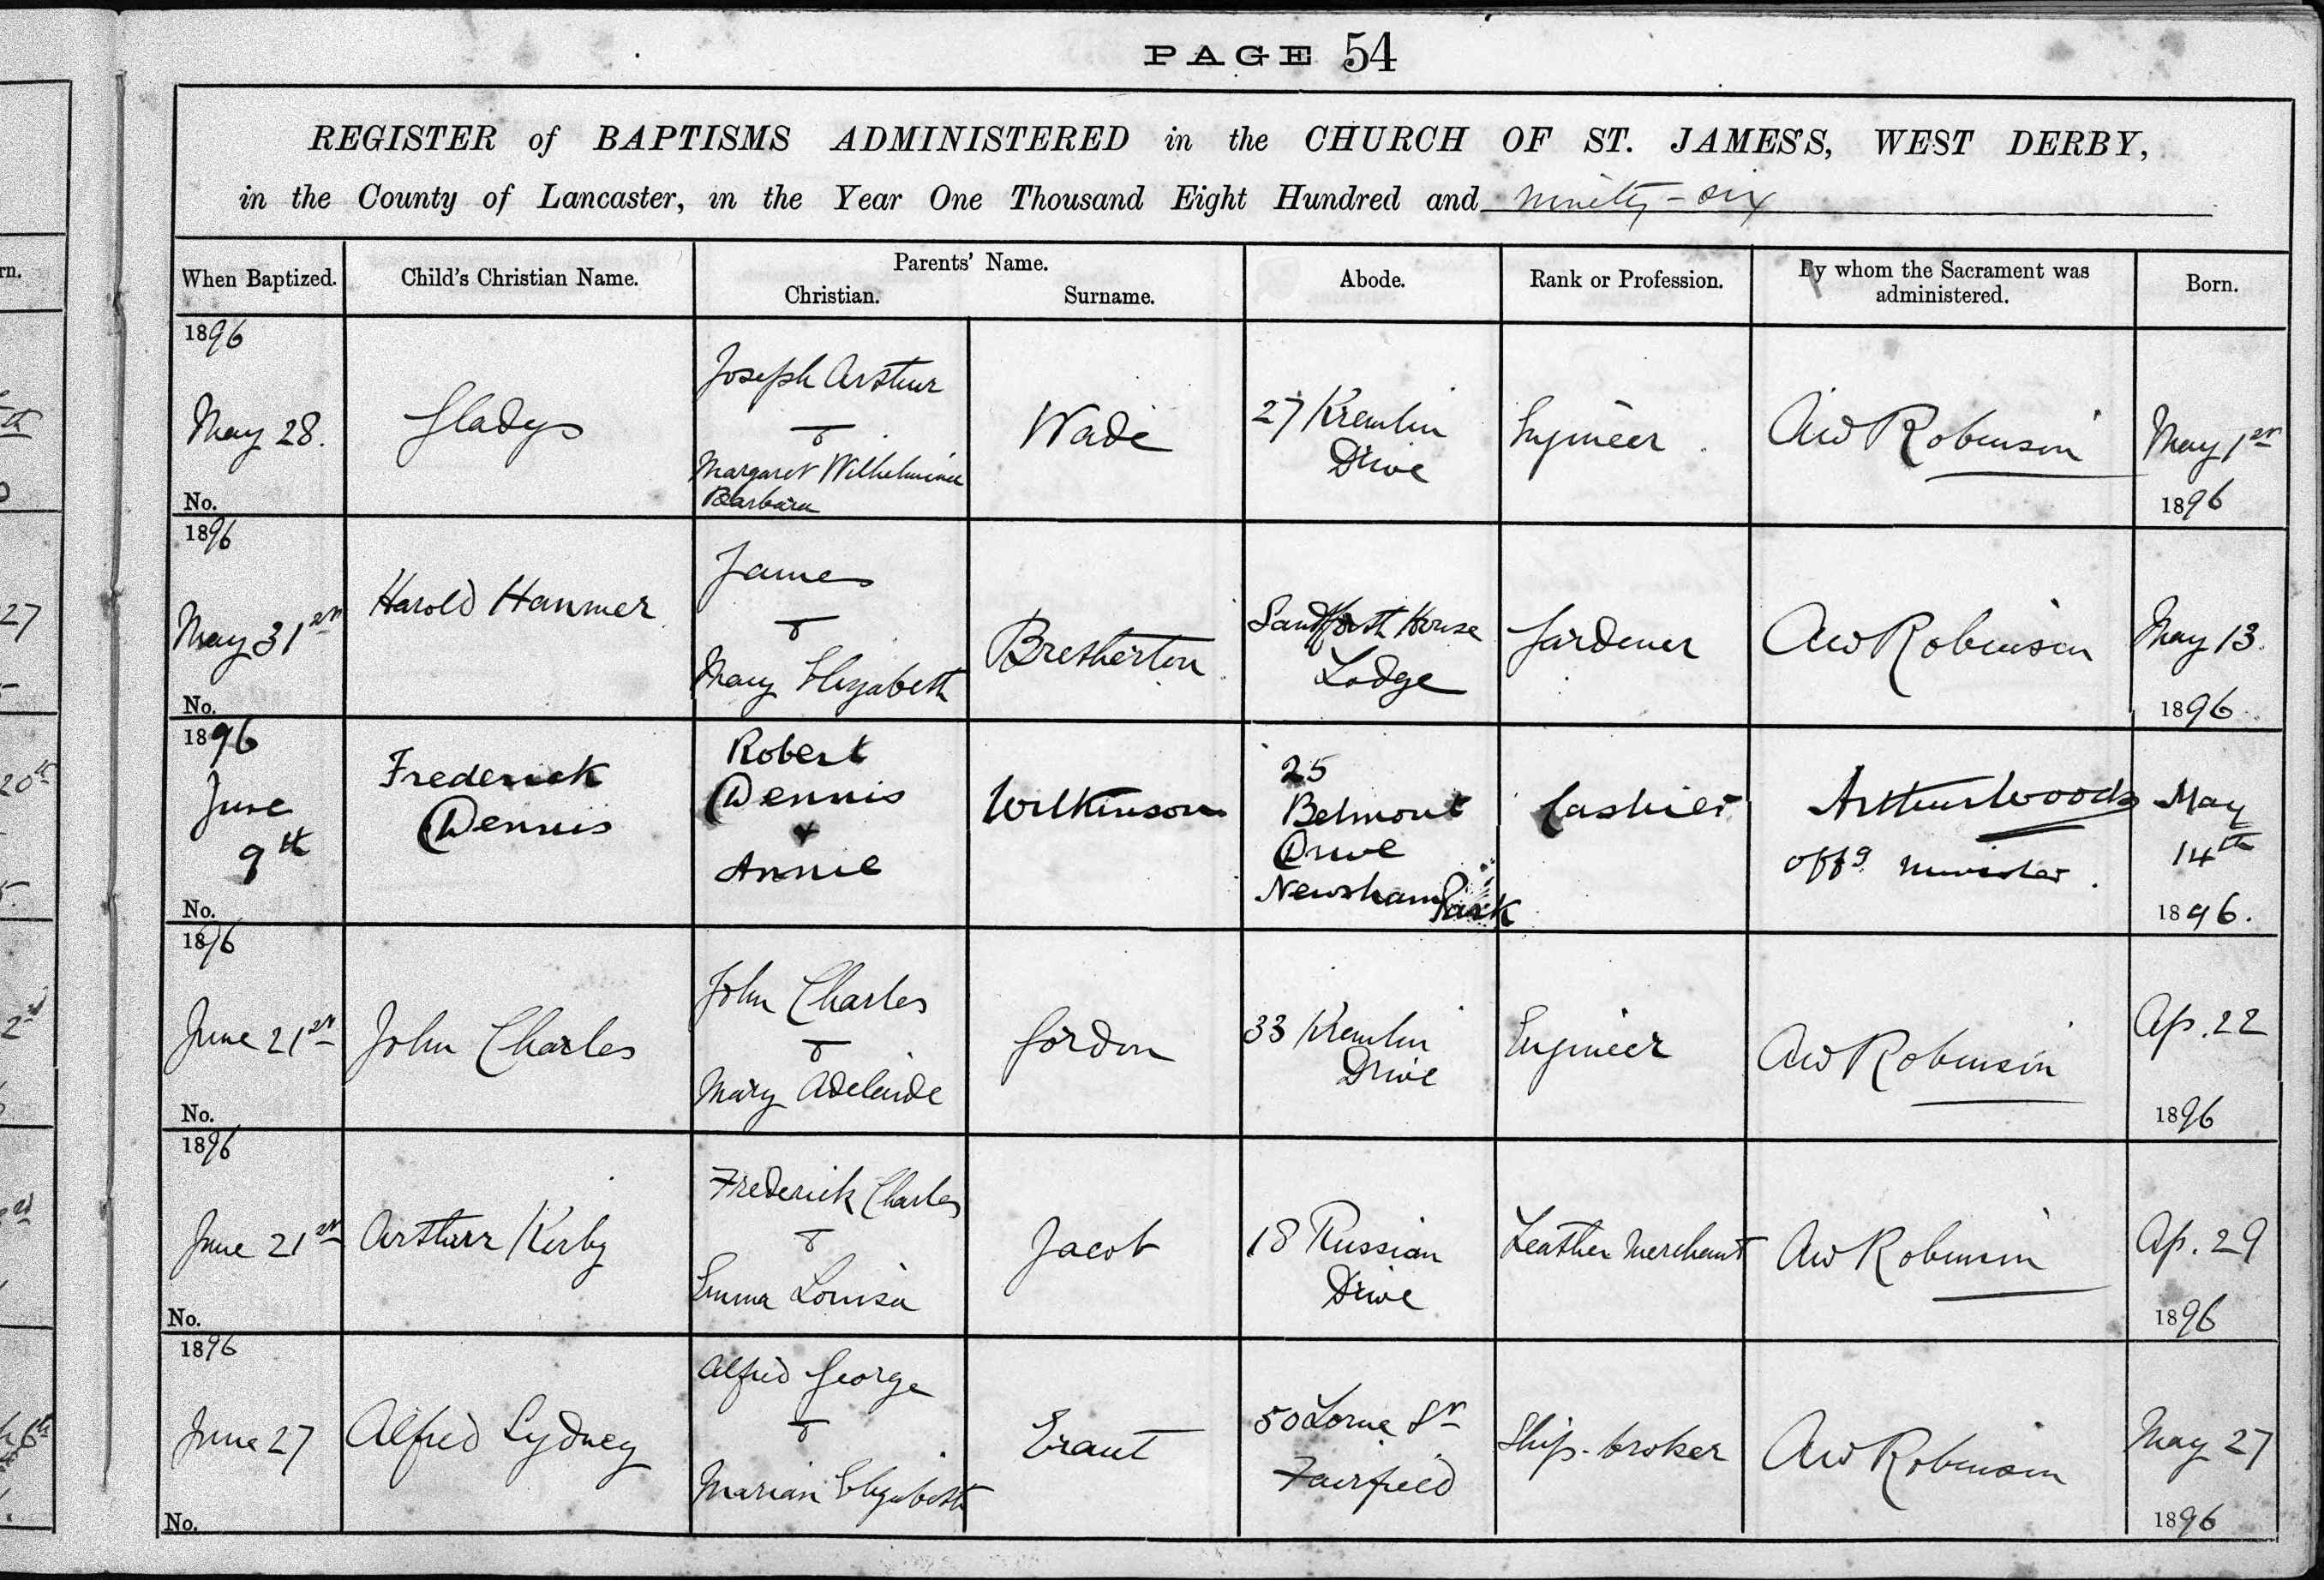 PAGE 54
REGISTER of BAPTISMS ADMINISTERED in the CHURCH OF ST. JAMES'S, WEST DERBY,
in the County of Lancaster, in the Year One Thousand Eight Hundred and ninety-six
When Baptized.
Child's Christian Name.
Parents' Name.
Christian.
Surname.
Abode.
Rank or Profession.
By whom the Sacrament was
administered.
Born.
1896
May 28.
No.
Gladys
Joseph Arthur
&
Margaret Wilhelmina
Barbara
Wade
27 Kremlin
Drive
Engineer
AW Robinson
May 1st
1896
1896
May 31st
No.
Harold Hanmer
James
&
Mary Elizabeth
Bretherton
Sandforth House
Lodge
Gardener
AW Robinson
May 13.
1896
1896
June
9th
No.
Frederick
Dennis
Robert
Dennis
&
Annie
Wilkinson
25
Belmont
Drive
Newsham Park
Cashier
Arthur Woods
offg minister.
May
14th
1896.
1896
June 21st
No.
John Charles
John Charles
&
Mary Adelaide
Gordon
33 Kremlin
Drive
Engineer
AW Robinson
Ap. 22
1896
1896
June 21st
No.
Arthur Kirby
Frederick Charles
&
Emma Louisa
Jacob
18 Russian
Drive
Leather Merchant
AW Robinson
Ap. 29
1896
1896
June 27
No.
Alfred Sydney
Alfred George
&
Marian Elizabeth
Eraut
50 Lorne St
Fairfield
Ship-broker
AW Robinson
May 27
1896